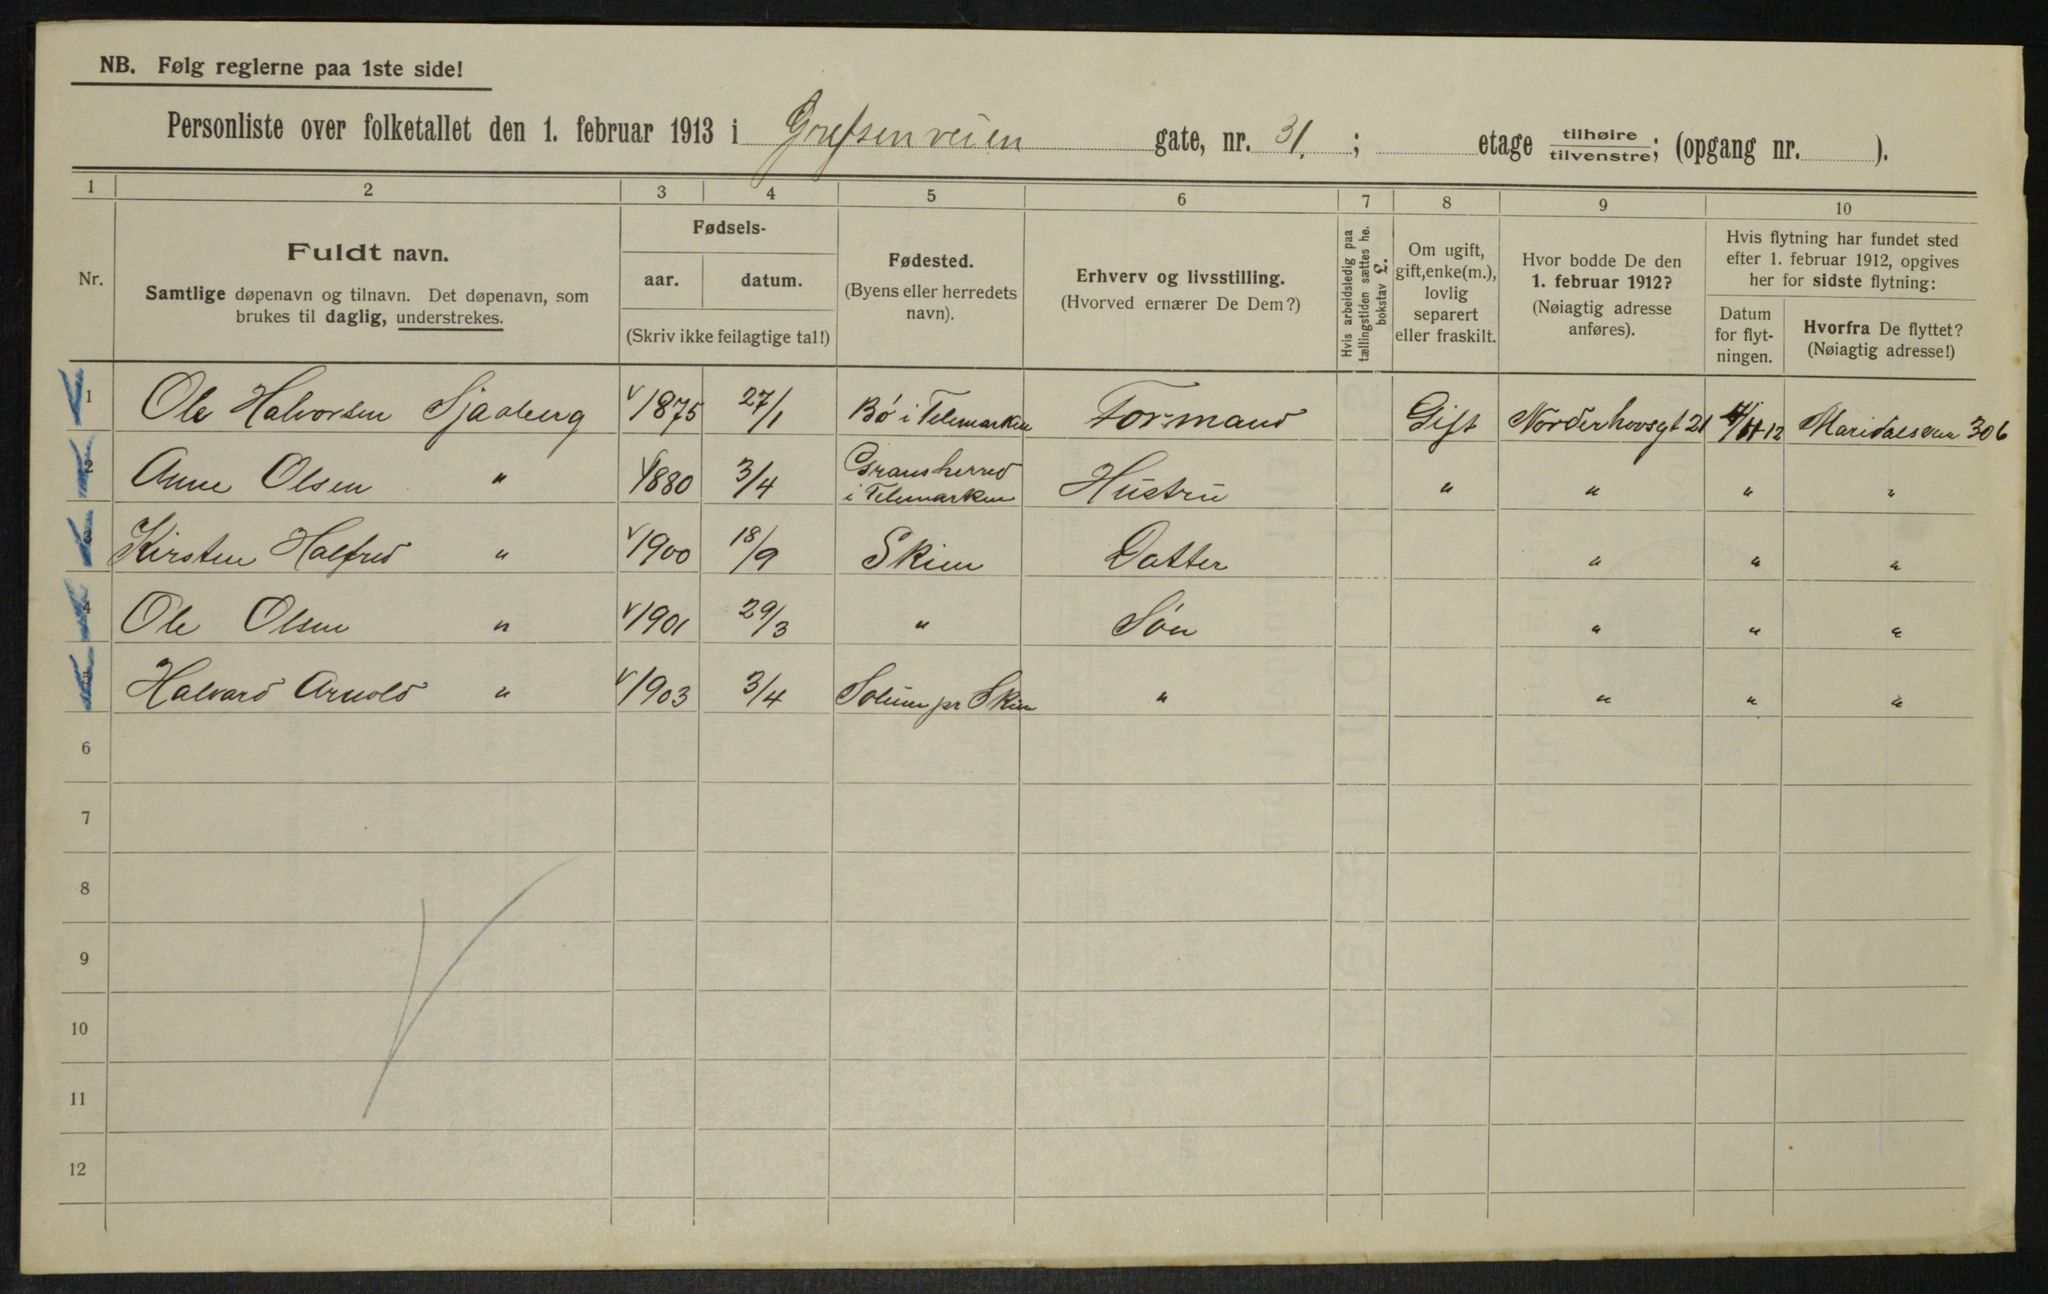 NB. Følg reglerne paa 1ste side!
Personliste over folketallet den 1. februar 1913 i Grefsenveien gate, nr. 31. ; etage tilhøire tilvenstre; (opgang nr. ).
1 2 3 4 5 6 7 8 9 10
Nr.
Fuldt navn.
Samtlige døpenavn og tilnavn. Det døpenavn, som
brukes til daglig, understrekes.
Fødsels-
aar. datum.
(Skriv ikke feilagtige tal!)
Fødested.
(Byens eller herredets
navn).
Erhverv og livsstilling.
(Hvorved ernærer De Dem?)
Hvis arbeidsledig paa
tællingstiden sættes he.
bokstav £.
Om ugift,
gift, enke(m.),
lovlig
separert
eller fraskilt.
Hvor bodde De den
1. februar 1912?
(Nøiagtig adresse
anføres).
Hvis flytning har fundet sted
efter 1. februar 1912, opgives
her for sidste flytning:
Datum
for flyt-
ningen.
Hvorfra De flyttet?
(Nøiagtig adresse!)
1 Ole Halvorsen Sjaaberg 1875 27/1 Bø i Telemarken Formand Gift Norderhovsgt 21 12 Maridalsveien 306
2 Anne Olsen " 1880 3/4 Gransherred i Telemarken Hustru " " " "
3 Kirsten Halfred " 1900 18/9 Skien Datter " " "
4 Ole Olsen " 1901 29/3 " Søn " " "
5 Halvard Arnold " 1903 3/4 Solum pr Skien " " " "
6
7
8
9
10
11
12